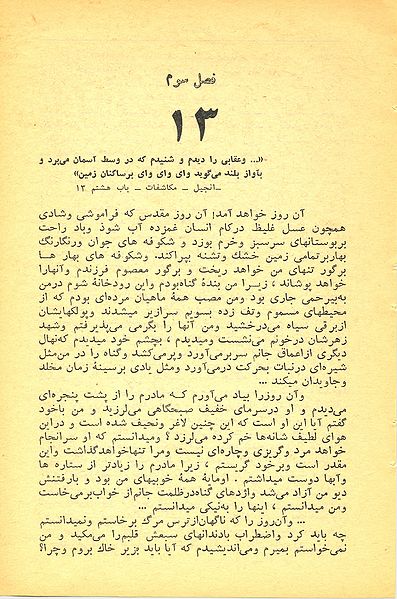 فصل سوم
۱۳
«... وعقابی را دیدم و شنیدم که در وسط آسمان می‌پرد و
بآواز بلند می‌گوید وای وای وای برساکنان زمین»
ـ انجیل ـ مکاشفات ـ باب هشتم ۱۳
آن روز خواهد آمد؛ آن روز مقدس که فراموشی وشادی
همچون عسل غلیظ درکام انسان غمزده آب شود وباد راحت
بربوستانهای سرسبز وخرم بوزد و شکوفه های جوان ورنگارنگ
بهاربرتمامی زمین خشك وتشنه بپراکند. وشکوفه‌های بهار ها
برگور تنهای من خواهد ریخت و برگور معصوم فرزندم وآنهارا
خواهد پوشاند ، زیرا من بندهٔ گناه‌بودم واین رودخانهٔ شوم درمن
به‌بیرحمی جاری بود ومن مصب همهٔ ماهیان مرده‌ای بودم که از
محیطهای مسموم وتف زده بسویم سرازیر میشدند وپولکهایشان
ازبرقی سیاه می‌درخشید ومن آنها را بگرمی می‌پذیرفتم وشهد
زهرشان درخونم می‌نشست ومیدیدم ، بچشم خود میدیدم که‌نهال
دیگری ازاعماق جانم سربرمی‌آورد وپرمی‌کشد وگناه را در من‌مثل
شیره‌ای درنبات بحرکت درمی‌آورد ومثل یادی برسینهٔ زمان مخلد
وجاویدان میکند ...
وآن روزرا بیاد می‌آورم کـه مادرم را از پشت پنجره‌ای
می‌دیدم و او درسرمای خفیف صبحگاهی می‌لرزید و من باخود
گفتم آیا این او است که این چنین لاغر ونحیف شده است و دراین
هوای لطیف شانه‌ها خم کرده می‌لرزد ؟ ومیدانستم که او سرانجام
خواهد مرد وگریزی وچاره‌ای نیست ومرا تنهاخواهدگذاشت واین
مقدر است وبرخود گریستم ، زیرا مادرم را زیادتر از ستاره ها
وآبها دوست میداشتم . اومایهٔ همهٔ خوبیهای من بود و بارفتنش
دیو من آزاد می‌شد واژدهای گناه‌درظلمت جانم‌از خواب‌برمی‌خاست
ومن میدانستم ، اینها را به‌نیکی میدانستم ...
... وآن‌روز را که ناگهان‌ازترس مرگ برخاستم ونمیدانستم
چه باید کرد واضطراب بادندانهای سبعش قلبم‌را می‌مکید و من
نمی‌خواستم بمیرم ومی‌اندیشیدم که آیا باید بزیر خاك بروم وچرا؟